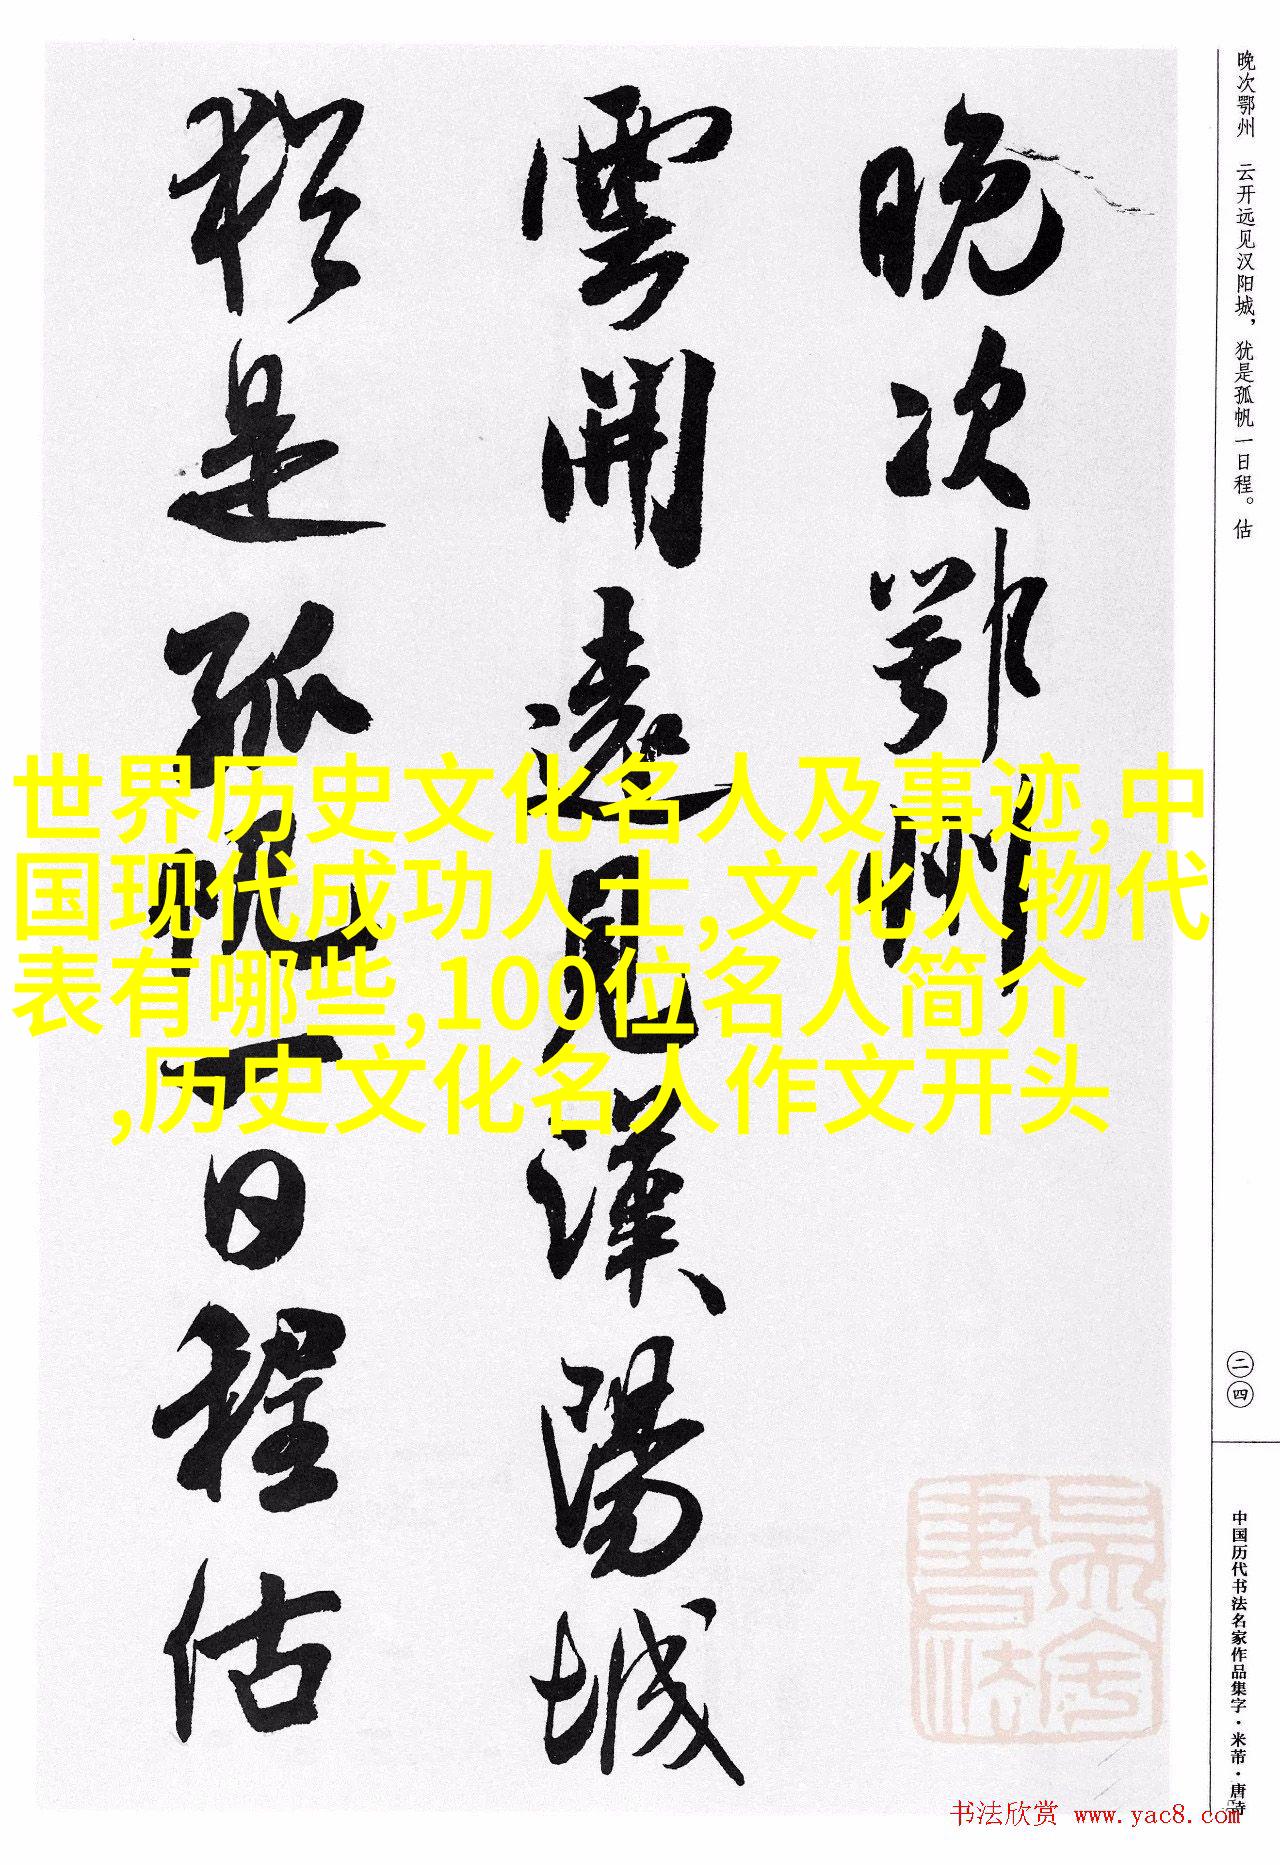 晚次鄂州 云开远见汉阳城，犹是孤帆一日程。估
晚次鄂州
雲開遠見漢陽城
猶是孤帆一日程估
世界历史文化名人及事迹,中
国现代成功人士,文化人物代
表有哪些,100位名人简介
,历史文化名人作文开头
二四
中国历代书法名家作品集字·米芾·唐诗
书法欣赏 www.yac8.com